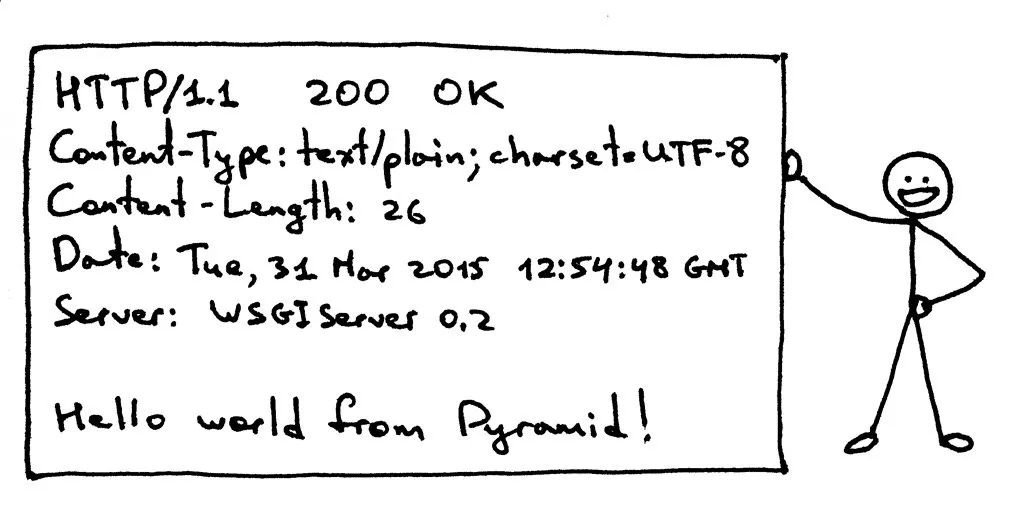 HTTP/1.1 200 OK
Content-Type: text/plain; charset=UTF-8
Content-Length: 26
Date: Tue, 31 Mar 2015 12:54:48 GMT
Server: WSGIServer 0.2
Hello world from Pyramid!